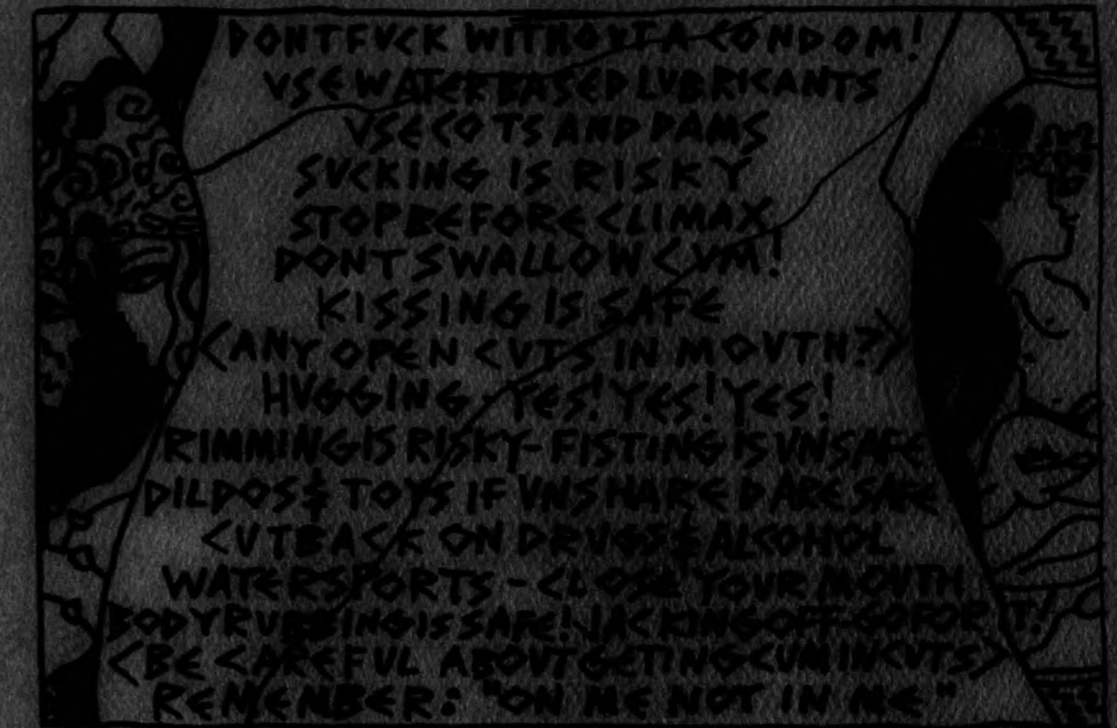 DONT FVCK WITHOVT A CONDOM!
VSE WATER BASED LVBRICANTS
VSE COTS AND DAMS
SVCKING IS RISKY
STOP BEFORE CLIMAX
DONT SWALLOW CVM!
KISSING IS SAFE
<ANY OPEN CVTS IN MOVTH?>
HVGGING - YES! YES! YES!
RIMMING IS RISKY - FISTING IS VNSAFE
DILDOS & TOYS IF VNSHARED ARE SAFE
CVT BACK ON DRVGS & ALCOHOL
WATERSPORTS - CLOSE YOUR MOVTH
BODY RVBBING IS SAFE! JACKING OFF - GO FOR IT!
<BE CAREFUL ABOVT GETING CUM IN CVTS>
REMEMBER: "ON ME NOT IN ME"